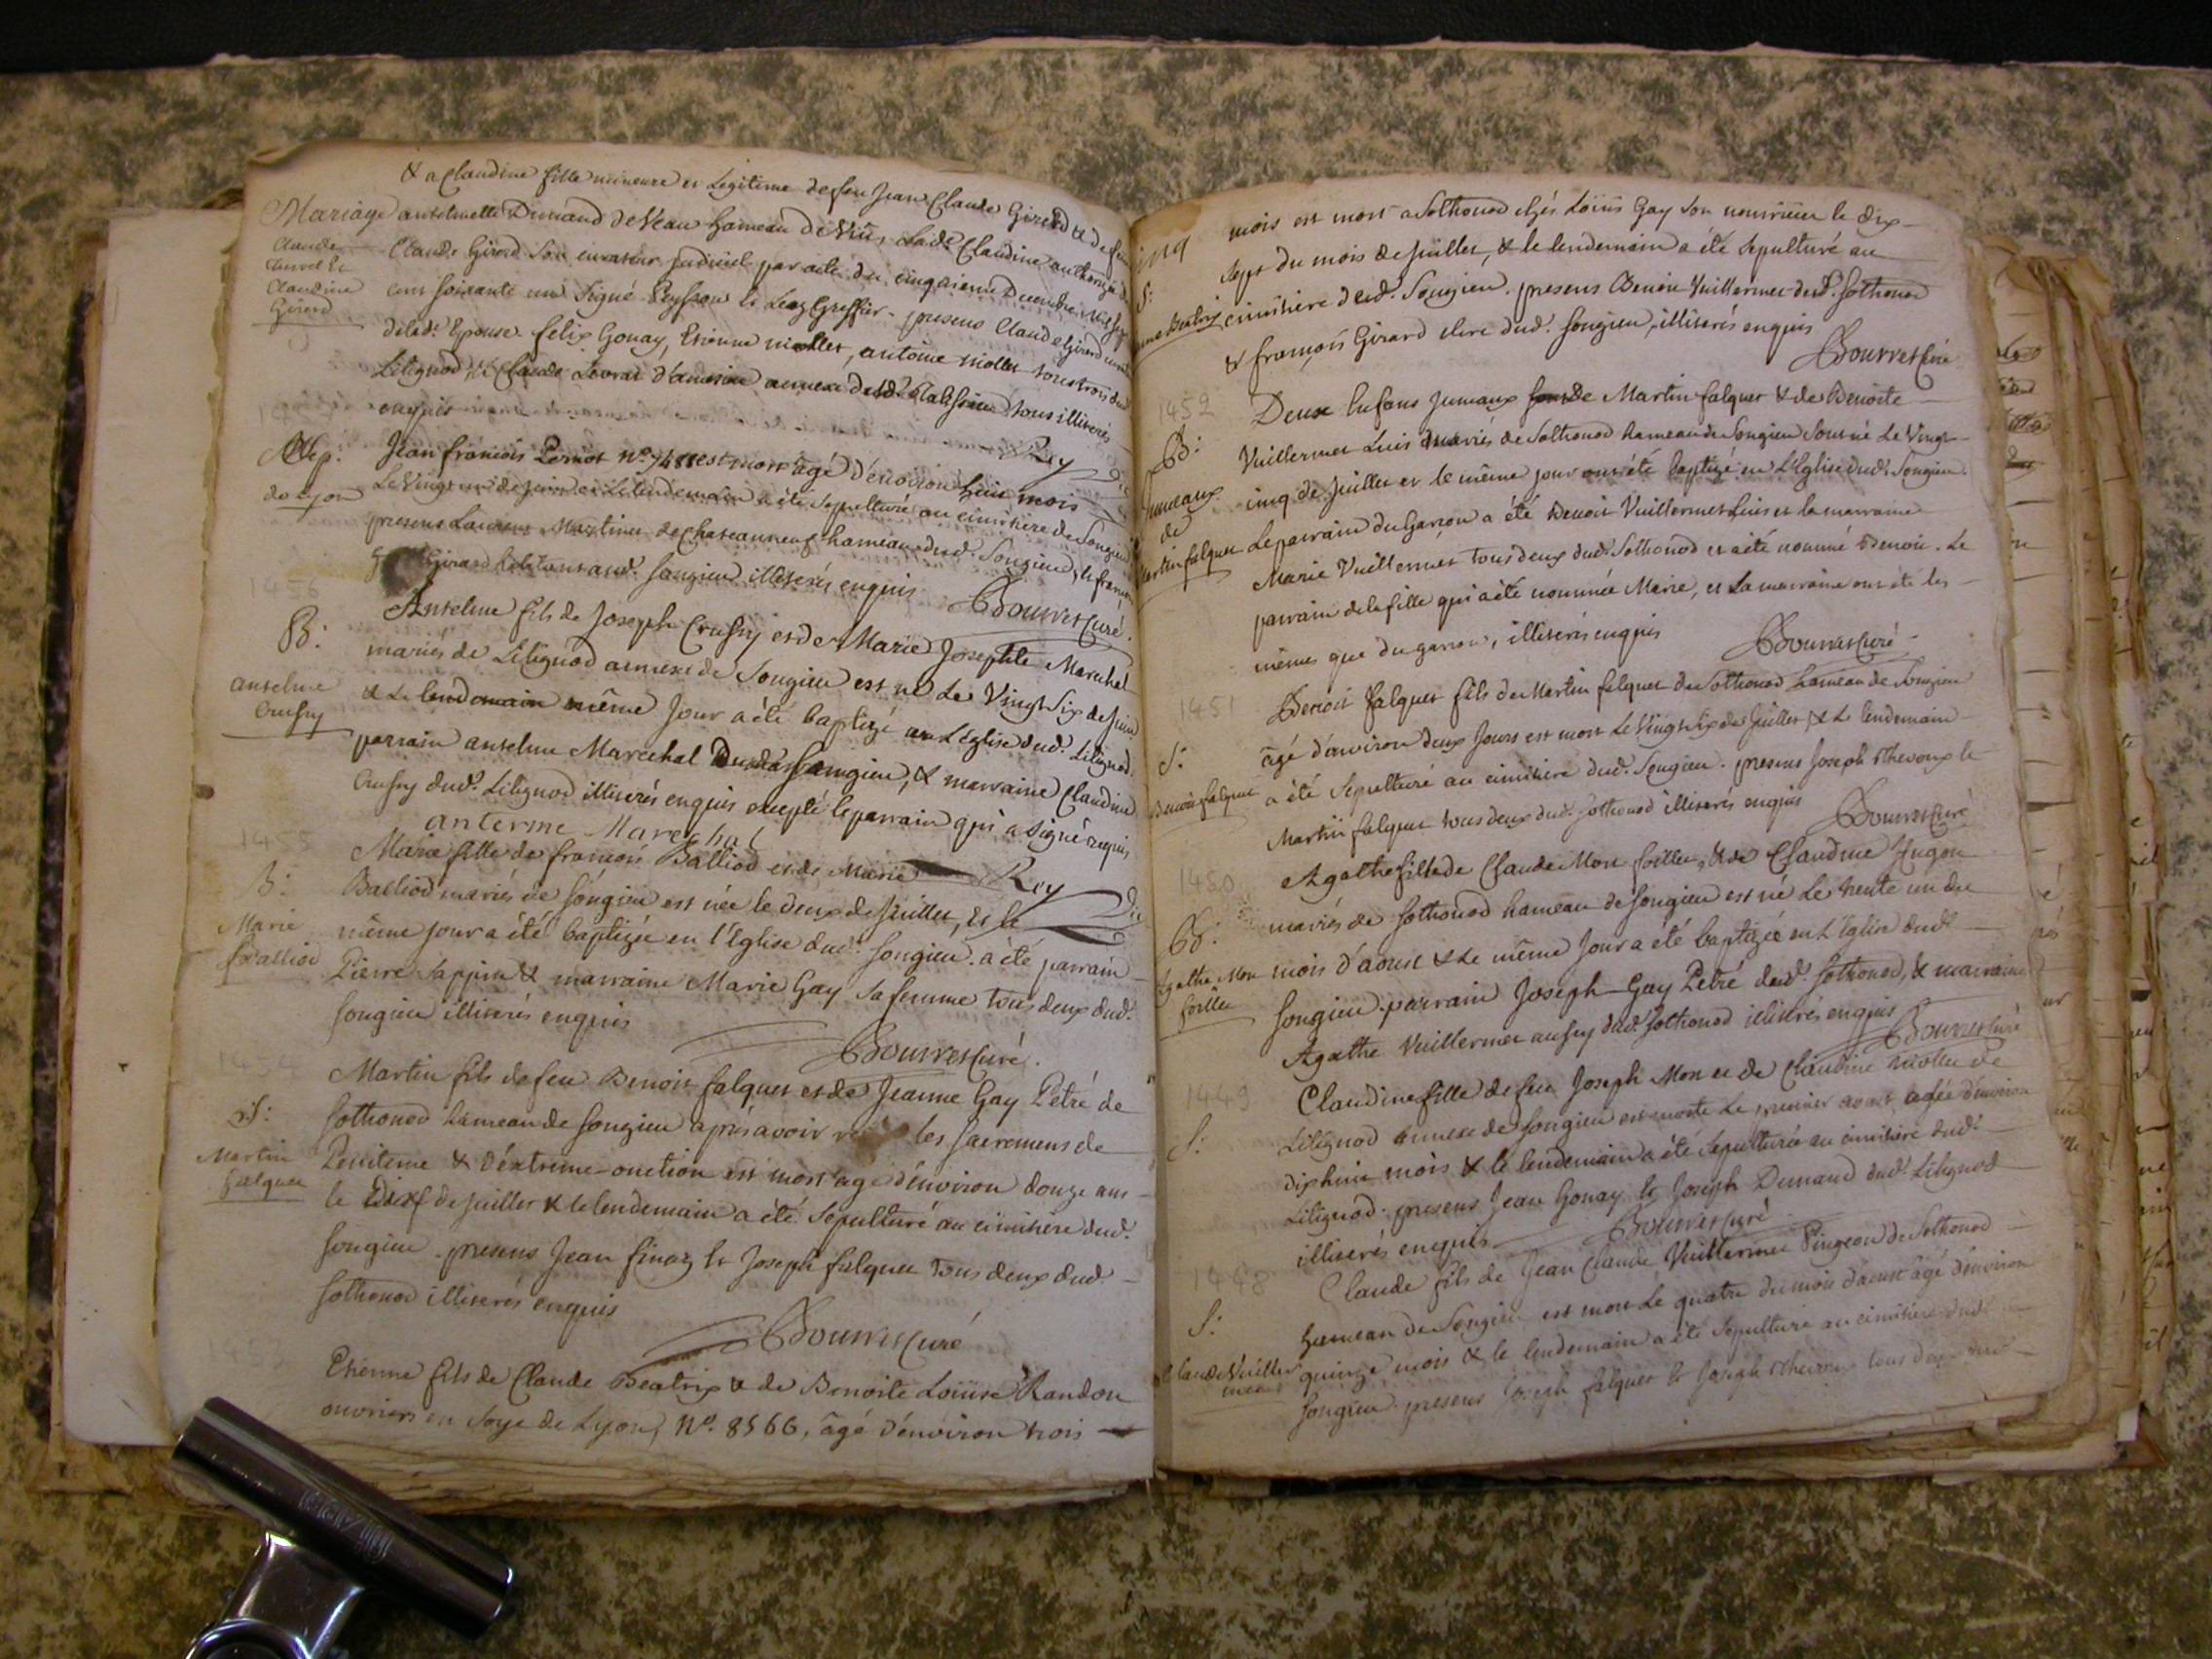 & a Claudine fille mineure et Legitime de feu Jean Claude Girerd & de feu
Mariage antoinette Dumand de Veau hameau de Vin, lade Claudine authorisé de
Claude
Claudine
Girerd
Claude Girerd Son curateur par acte du cinq Decembre
cent soixante un Signé Peysson Greffier. presens Claude Girerd
delade Epouse. felix Gonay, Etienne mollet, antoine mollet tous trois dud
Lilignod, & Claude Levrat d'ameysin annexe dud. tous illiterés
enquis
Rey
Sep:
de Lyon
Jean francois Pernot No. 7488 est mort agé d'environ huit mois
Le Vingt un de Juin et Le lendemain a été Sepulturé au cimitiere de Songieu
presens Laurent Martinet de Chateauneuf hameau dud. Songieu, & francois
Girard habitant aud. Songieu illiterés enquis
Bouvret Curé.
1456
B:
anselme
Crusy
Anselme fils de Joseph Crussy et de Marie Josephte Marechal
mariés de Lilignod annexe de Songieu est né Le Vingt Six de Juin
& Le lendemain même Jour a été baptizé en L'église dud. Lilignod.
parrain anselme Marechal Dud. Songieu, & marraine Claudine
Crussy dud. Lilignod illiterés enquis excepté le parrain qui a signé requis
anterme Marechal
Rey
1455
B:
Marie
Balliod
Marie fille de francois Balliod et de Marie
Balliod mariés de Songieu est née le deux de Juillet, et le
même jour a été baptizée en l'Eglise dud. Songieu. a été parrain
Pierre Sappin & marraine Marie Gay Sa femme tous deux dud.
Songieu illiterés enquis
Bouvret Curé.
1454
S:
Martin
falquet
Martin fils de feu Benoit falquet et de Jeanne Gay Petré de
Sothonod hameau de Songieu après avoir les Sacremens de
Penitense & d'extreme-onction est mort agé d'environ douze ans
le de Juillet & le lendemain a été Sepulturé au cimitiere dud.
Songieu. presens Jean finaz & Joseph falquet tous deux dud
Sothonod illiterés enquis
Bouvret Curé
Etienne fils de Claude Beatrix & de Benoite Loüise Randon
ouvriers en Soye de Lyon, No. 8566, âgé d'environ trois
S:
Beatrix
mois est mort a Sothonod chés Loüis Gay Son nourricier le dix
Sept du mois de Juillet, & le lendemain a été Sepulturé au
cimitiere dud. Songieu. presens Benoit Vuillermet dud. Sothonod
& francois Girard clerc dud. Songieu, illiterés enquis
Bouvret Curé
1452
B:
Jumeaux
de
Martin falquet
Deux Enfans Jumeaux de Martin falquet & de Benoite
Vuillermet Luis mariés de Sothonod hameau de Songieu Sont né Le Vingt
cinq de Juillet et le même jour ont été baptizé en L'Eglise dud. Songieu.
Le parrain du Garçon a été Benoit Vuillermet Luis et la marraine
Marie Vuillermet tous deux dud. Sothonod et a été nommé Benoit. Le
parrain de la fille qui a été nommée Marie, et La marraine ont été les
mêmes que du garçon, illiterés enquis
Bouvret Curé
1451
S:
Benoit falquet
Benoit falquet fils de Martin falquet de Sothonod hameau de Songieu
âgé d'environ deux Jours est mort Le Vingt Six de Juillet & Le lendemain
a été Sepulturé au cimitiere dud. Songieu. presens Joseph Thevoux &
Martin falquet tous deux dud. Sothonod illiterés enquis
Bouvret Curé
1450
B:
Agathe Mon
foillet
Agathe fille de Claude Mon foillet, & de Claudine Jugon
mariés de Sothonod hameau de Songieu est né Le trente un du
mois d'aoust & Le même Jour a été baptizée en L'Eglise dud.
Songieu. parrain Joseph Gay Petré dud. Sothonod, & marraine
Agathe Vuillermet aussy dud. Sothonod illiterés enquis
Bouvret Curé
1449
S:
Claudine fille de feu Joseph Mon et de Claudine Mollet de
Lilignod annexe de Songieu est morte Le premier aoust agée d'environ
dixhuit mois & le lendemain a été Sepulturée au cimitiere dud.
Lilignod. presens Jean Gonay & Joseph Dumand dud. Lilignod
illiterés enquis
Bouvret Curé
1448
S:
Claude Vuiller
met
Claude fils de Jean Claude Vuillermet Pingeon de Sothonod
hameau de Songieu est mort Le quatre du mois d'aoust âgé d'environ
quinze mois & le lendemain a été Sepulturé au cimitiere dud
Songieu. presens Joseph falquet & Joseph Thevoux tous deux dud